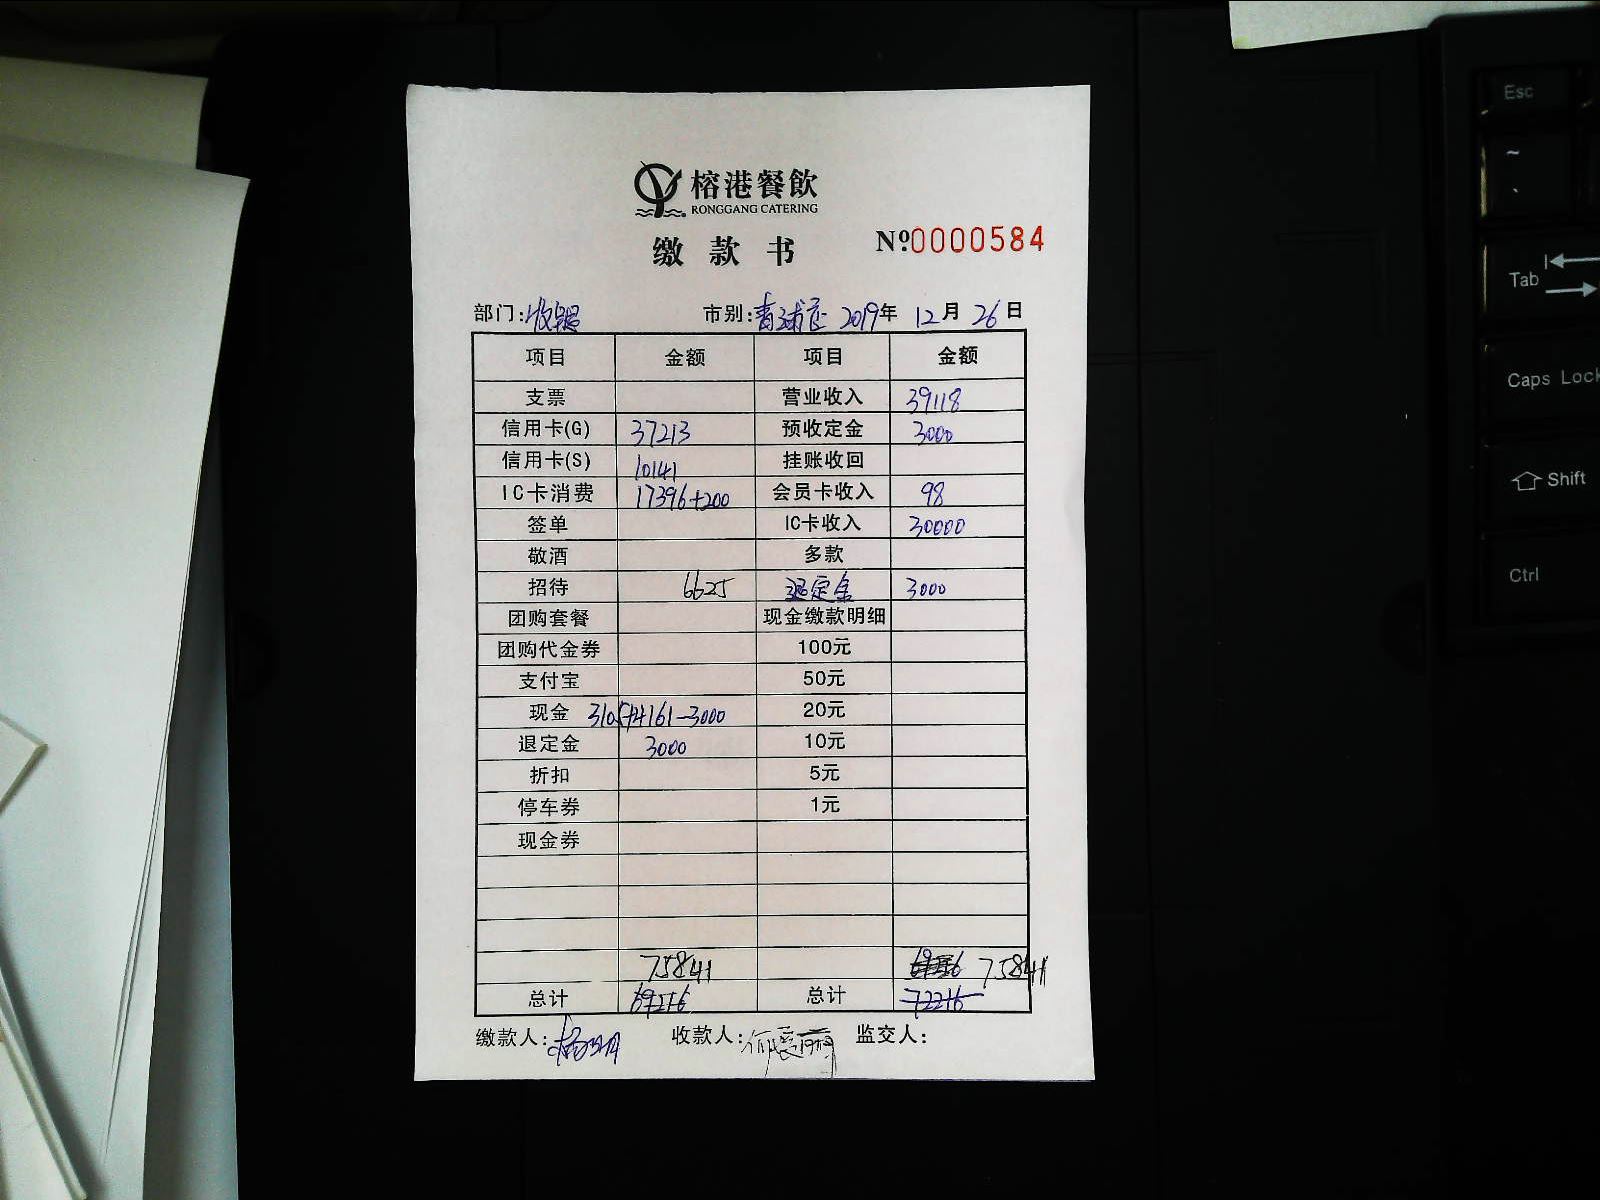 榕港餐飲
RONGGANG CATERING
缴款书 №0000584
部门:收银 市别:青浦店 2019年 12月 26日
项目 金额 项目 金额
支票 营业收入 39118
信用卡(G) 37213 预收定金 3000
信用卡(S) 10141 挂账收回
IC卡消费 17396+200 会员卡收入 98
签单 IC卡收入 30000
敬酒 多款
招待 6625 退定金 3000
团购套餐 现金缴款明细
团购代金券 100元
支付宝 50元
现金 +4161-3000 20元
退定金 3000 10元
折扣 5元
停车券 1元
现金券
75841 75841
总计 69216 总计 72216
缴款人: 收款人: 监交人:
Esc
~
Tab
Caps Lock
Shift
Ctrl